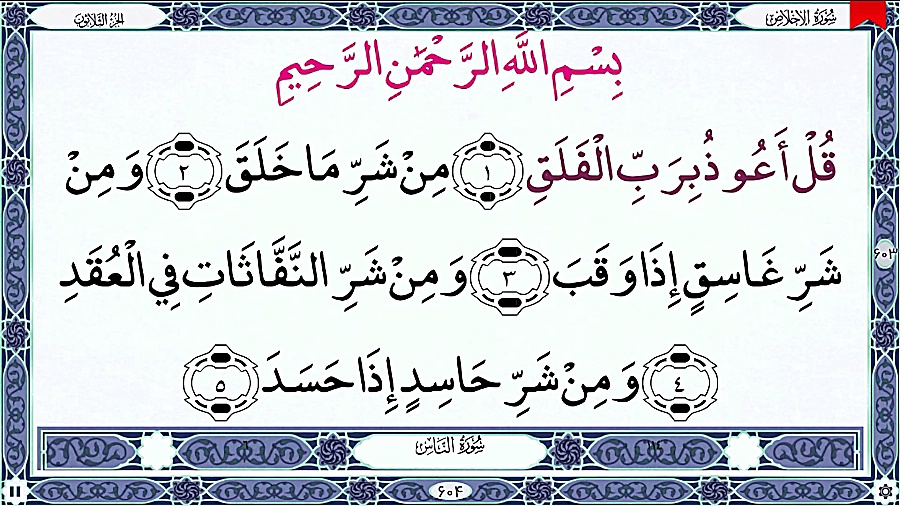 سُورَةُ الإِخْلَاصِ
الجُزْءُ الثَّلَاثُونَ
بِسْمِ اللَّهِ الرَّحْمَٰنِ الرَّحِيمِ
قُلْ أَعُوذُ بِرَبِّ الْفَلَقِ ١ مِنْ شَرِّ مَا خَلَقَ ٢ وَمِنْ
شَرِّ غَاسِقٍ إِذَا وَقَبَ ٣ وَمِنْ شَرِّ النَّفَّاثَاتِ فِي الْعُقَدِ
٤ وَمِنْ شَرِّ حَاسِدٍ إِذَا حَسَدَ ٥
سُورَةُ النَّاسِ
۶۰۳
۶۰۴